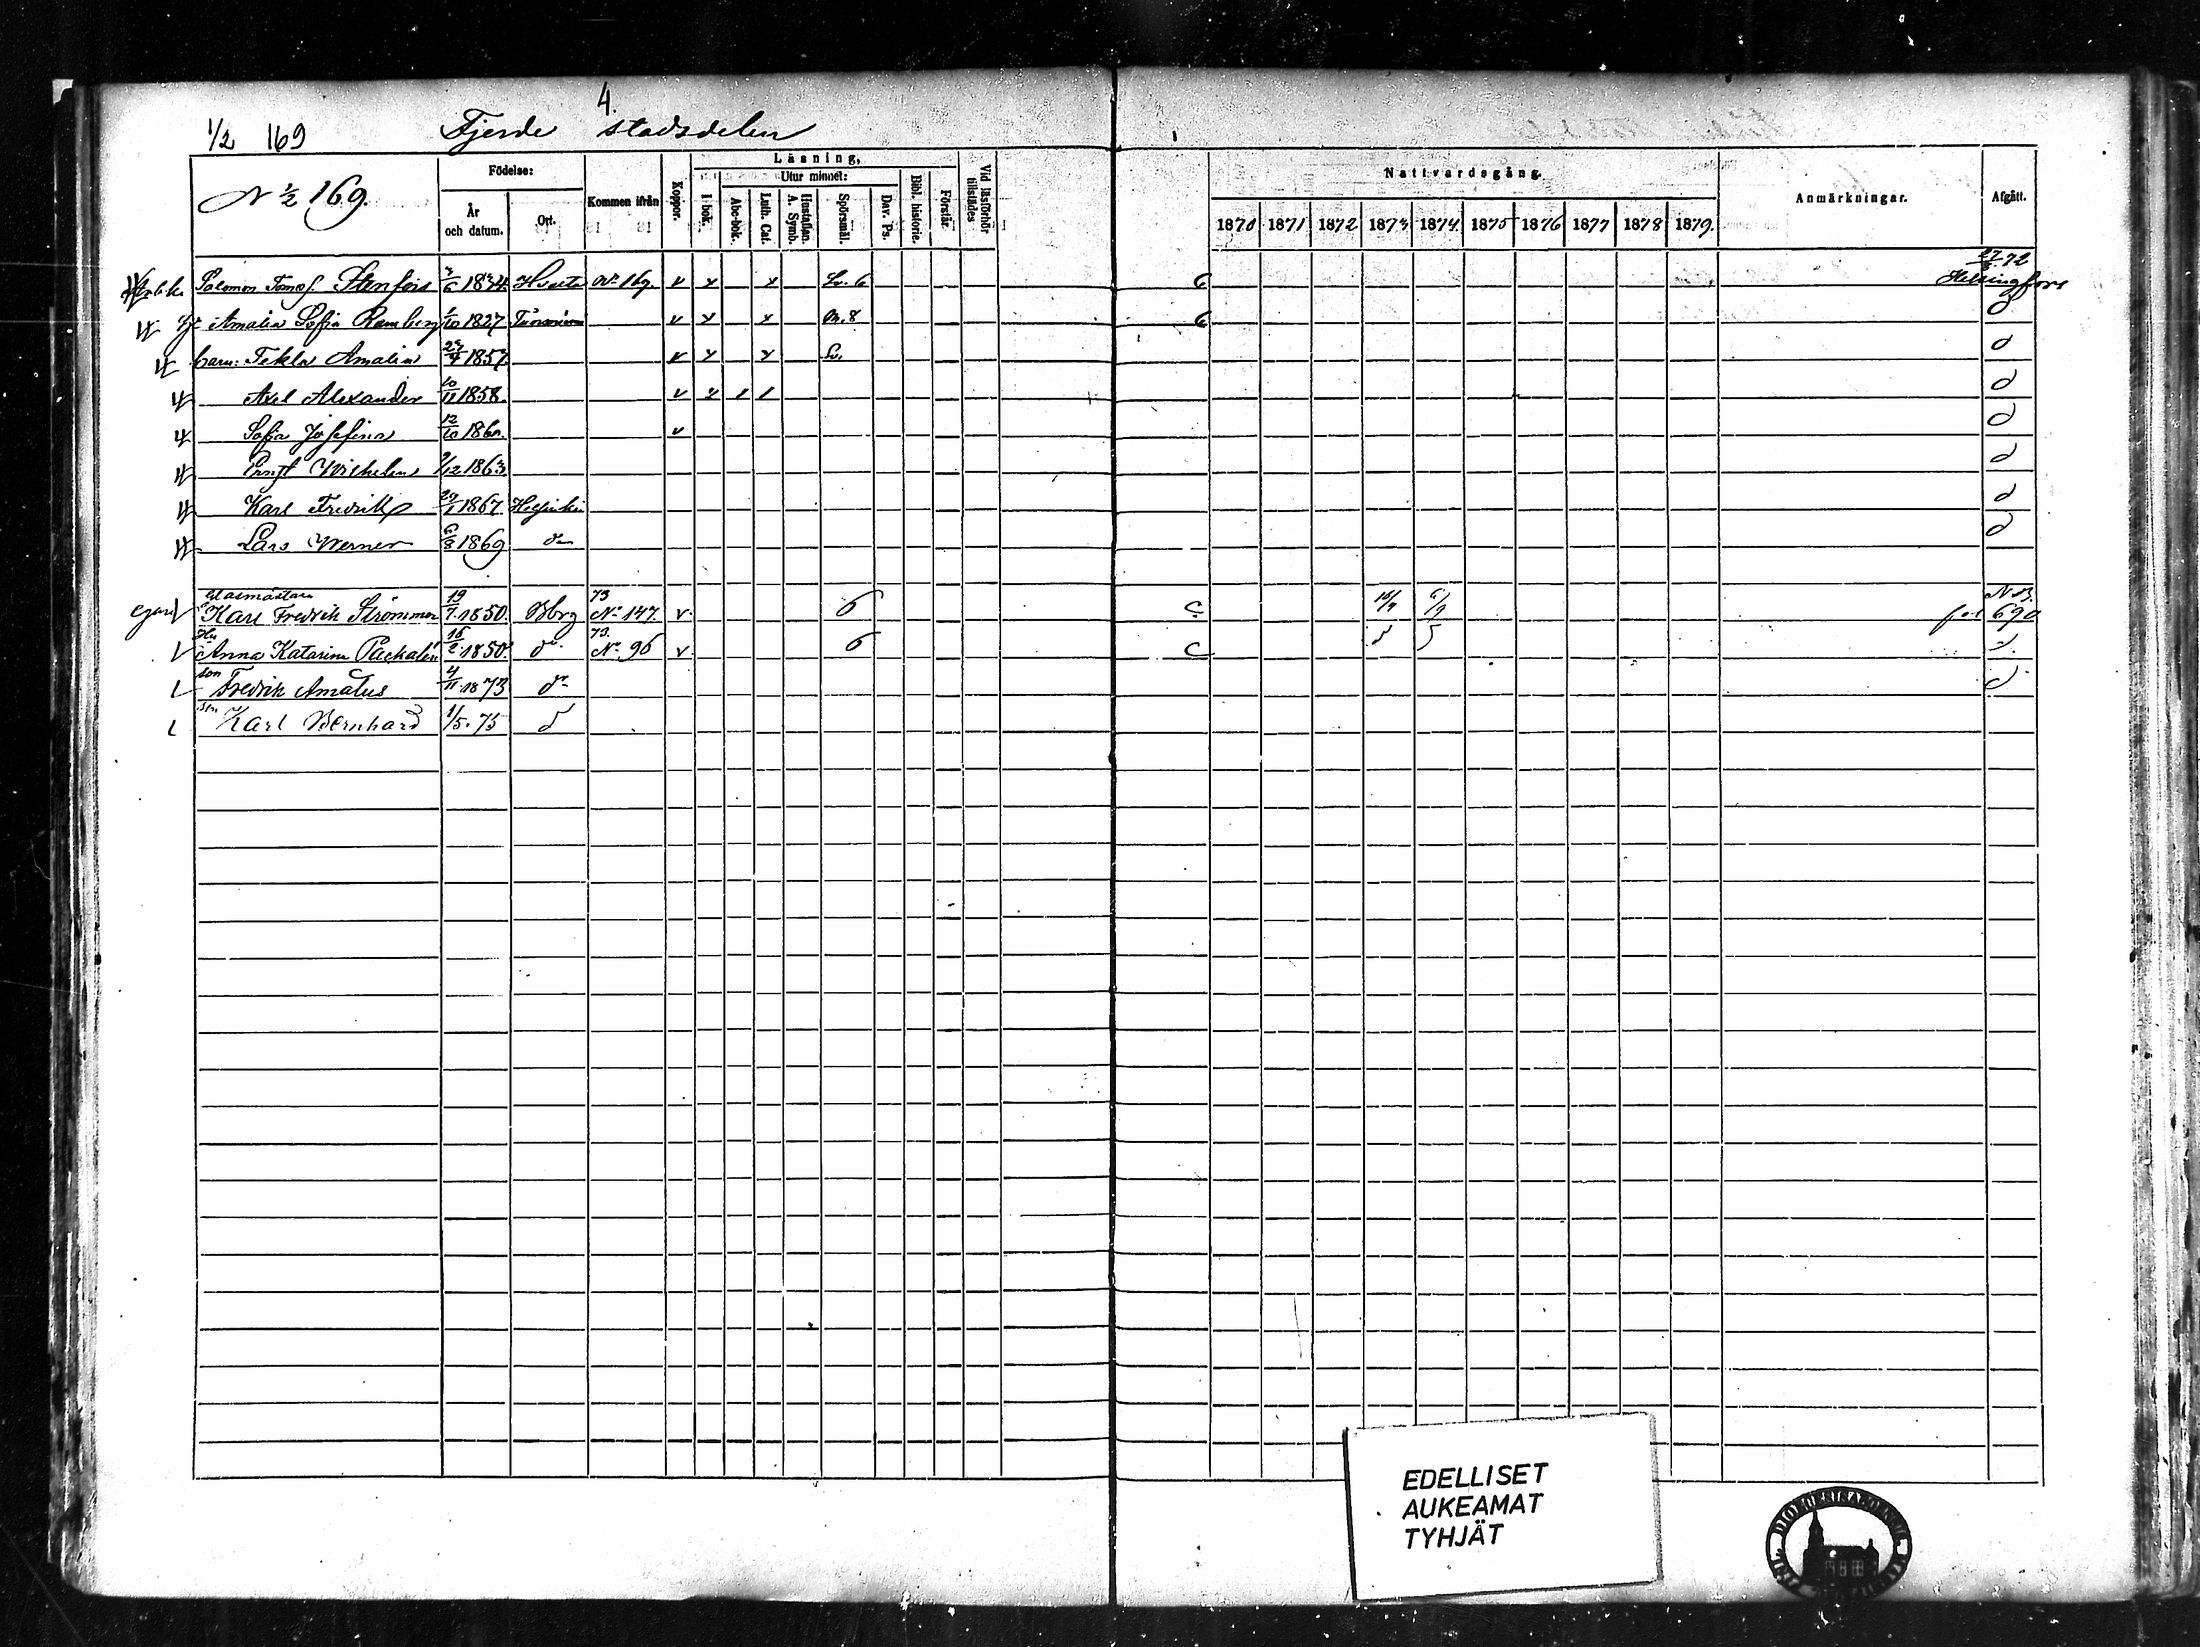 4.
1/2 169 Fjerde stadsdelen
N 1/2 169.
Födelse:
År och datum.
Ort.
Kommen ifrån
Koppor.
Läsning,
I bok.
Utur minnet:
Abc-bok.
Luth. Cat.
Hustaflan. A. Symb.
Spörsmål.
Dav. Ps.
Bibl. historie.
Förstår.
Vid läsförhör tillstädes
Nattvardsgång.
1870 1871 1872 1873 1874 1875 1876 1877 1878 1879.
Anmärkningar.
Afgått.
27/3 72
Salomon Tomasf. Stenfors 1834 No 169. v x x Sv. 6 6 Helsingfors
Amalia Sofia Ramberg 1827 v x x 8 6 d
barn: Tekla Amalia 1857. v x x Sv. d
Axel Alexander 10/11 1858. v x 1 1 d
Sofia Josefina 12/10 1860. v d
Ernst Wilhelm 9/12 1863 d
Karl Fredrik 29/1 1867 d
Lars Werner 6/8 1869 do d
Glasmästare 19 73 N.B.
Karl Fredrik Strömmer 19/7 1850. Wbrg No 147. v. 6 C 6/9 fol 690
Hu 73.
Anna Katarina Packalén 16/2 1850. do No. 96 v 6 C d.
son
Fredrik Amatus 4/11 1873 do d
son
Karl Bernhard 1/5. 75 d
EDELLISET
AUKEAMAT
TYHJÄT